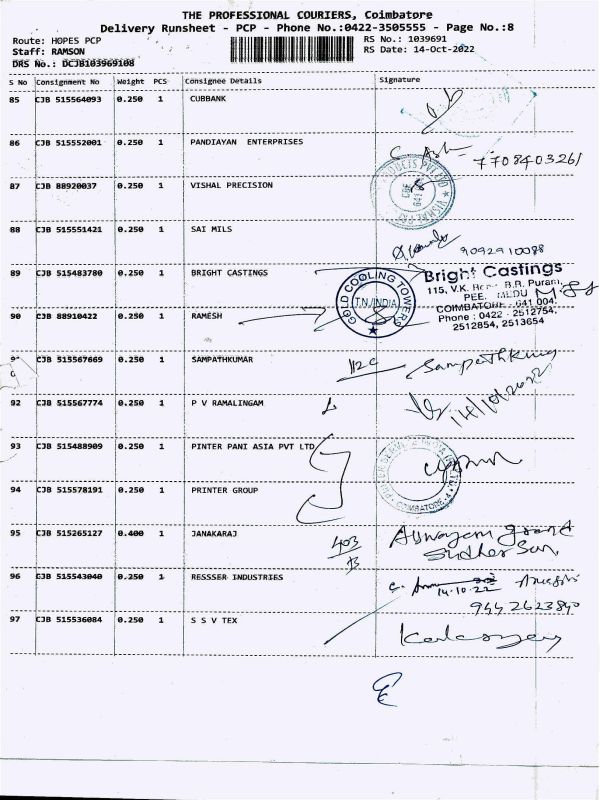 THE PROFESSIONAL COURIERS, Coimbatore
Delivery Runsheet - PCP - Phone No.:0422-3505555 - Page No.:8
Route: HOPES PCP
RS No.: 1039691
Staff: RAMSON
RS Date: 14-Oct-2022
DRS No.: DCJB103969108
S No Consignment No Weight PCS Consignee Details Signature
85 CJB 515564093 0.250 1 CUBBANK
86 CJB 515552001 0.250 1 PANDIAYAN ENTERPRISES
7708403261
87 CJB 88920037 0.250 1 VISHAL PRECISION
88 CJB 515551421 0.250 1 SAI MILS
9092910088
89 CJB 515483780 0.250 1 BRIGHT CASTINGS
GOLD COOLING TOWERS
T.N. INDIA
Bright Castings
115, V.K. B.R. Puram,
PEE MEDU
COIMBATORE - 641 004.
Phone : 0422 - 2512754,
2512854, 2513654
90 CJB 88910422 0.250 1 RAMESH
CJB 515567669 0.250 1 SAMPATHKUMAR
Sampathkumar
92 CJB 515567774 0.250 1 P V RAMALINGAM
14/10/2022
93 CJB 515488909 0.250 1 PINTER PANI ASIA PVT LTD
COIMBATORE
94 CJB 515578191 0.250 1 PRINTER GROUP
95 CJB 515265127 0.400 1 JANAKARAJ
403
B
96 CJB 515543040 0.250 1 RESSSER INDUSTRIES
14.10.22
9442623840
97 CJB 515536084 0.250 1 S S V TEX